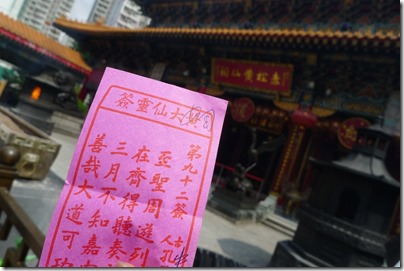 赤松黃仙祠
大仙靈簽
第九十二簽
古人
孔
至聖周遊列
在齊得聽奏
三月不知嘉
善哉大道可